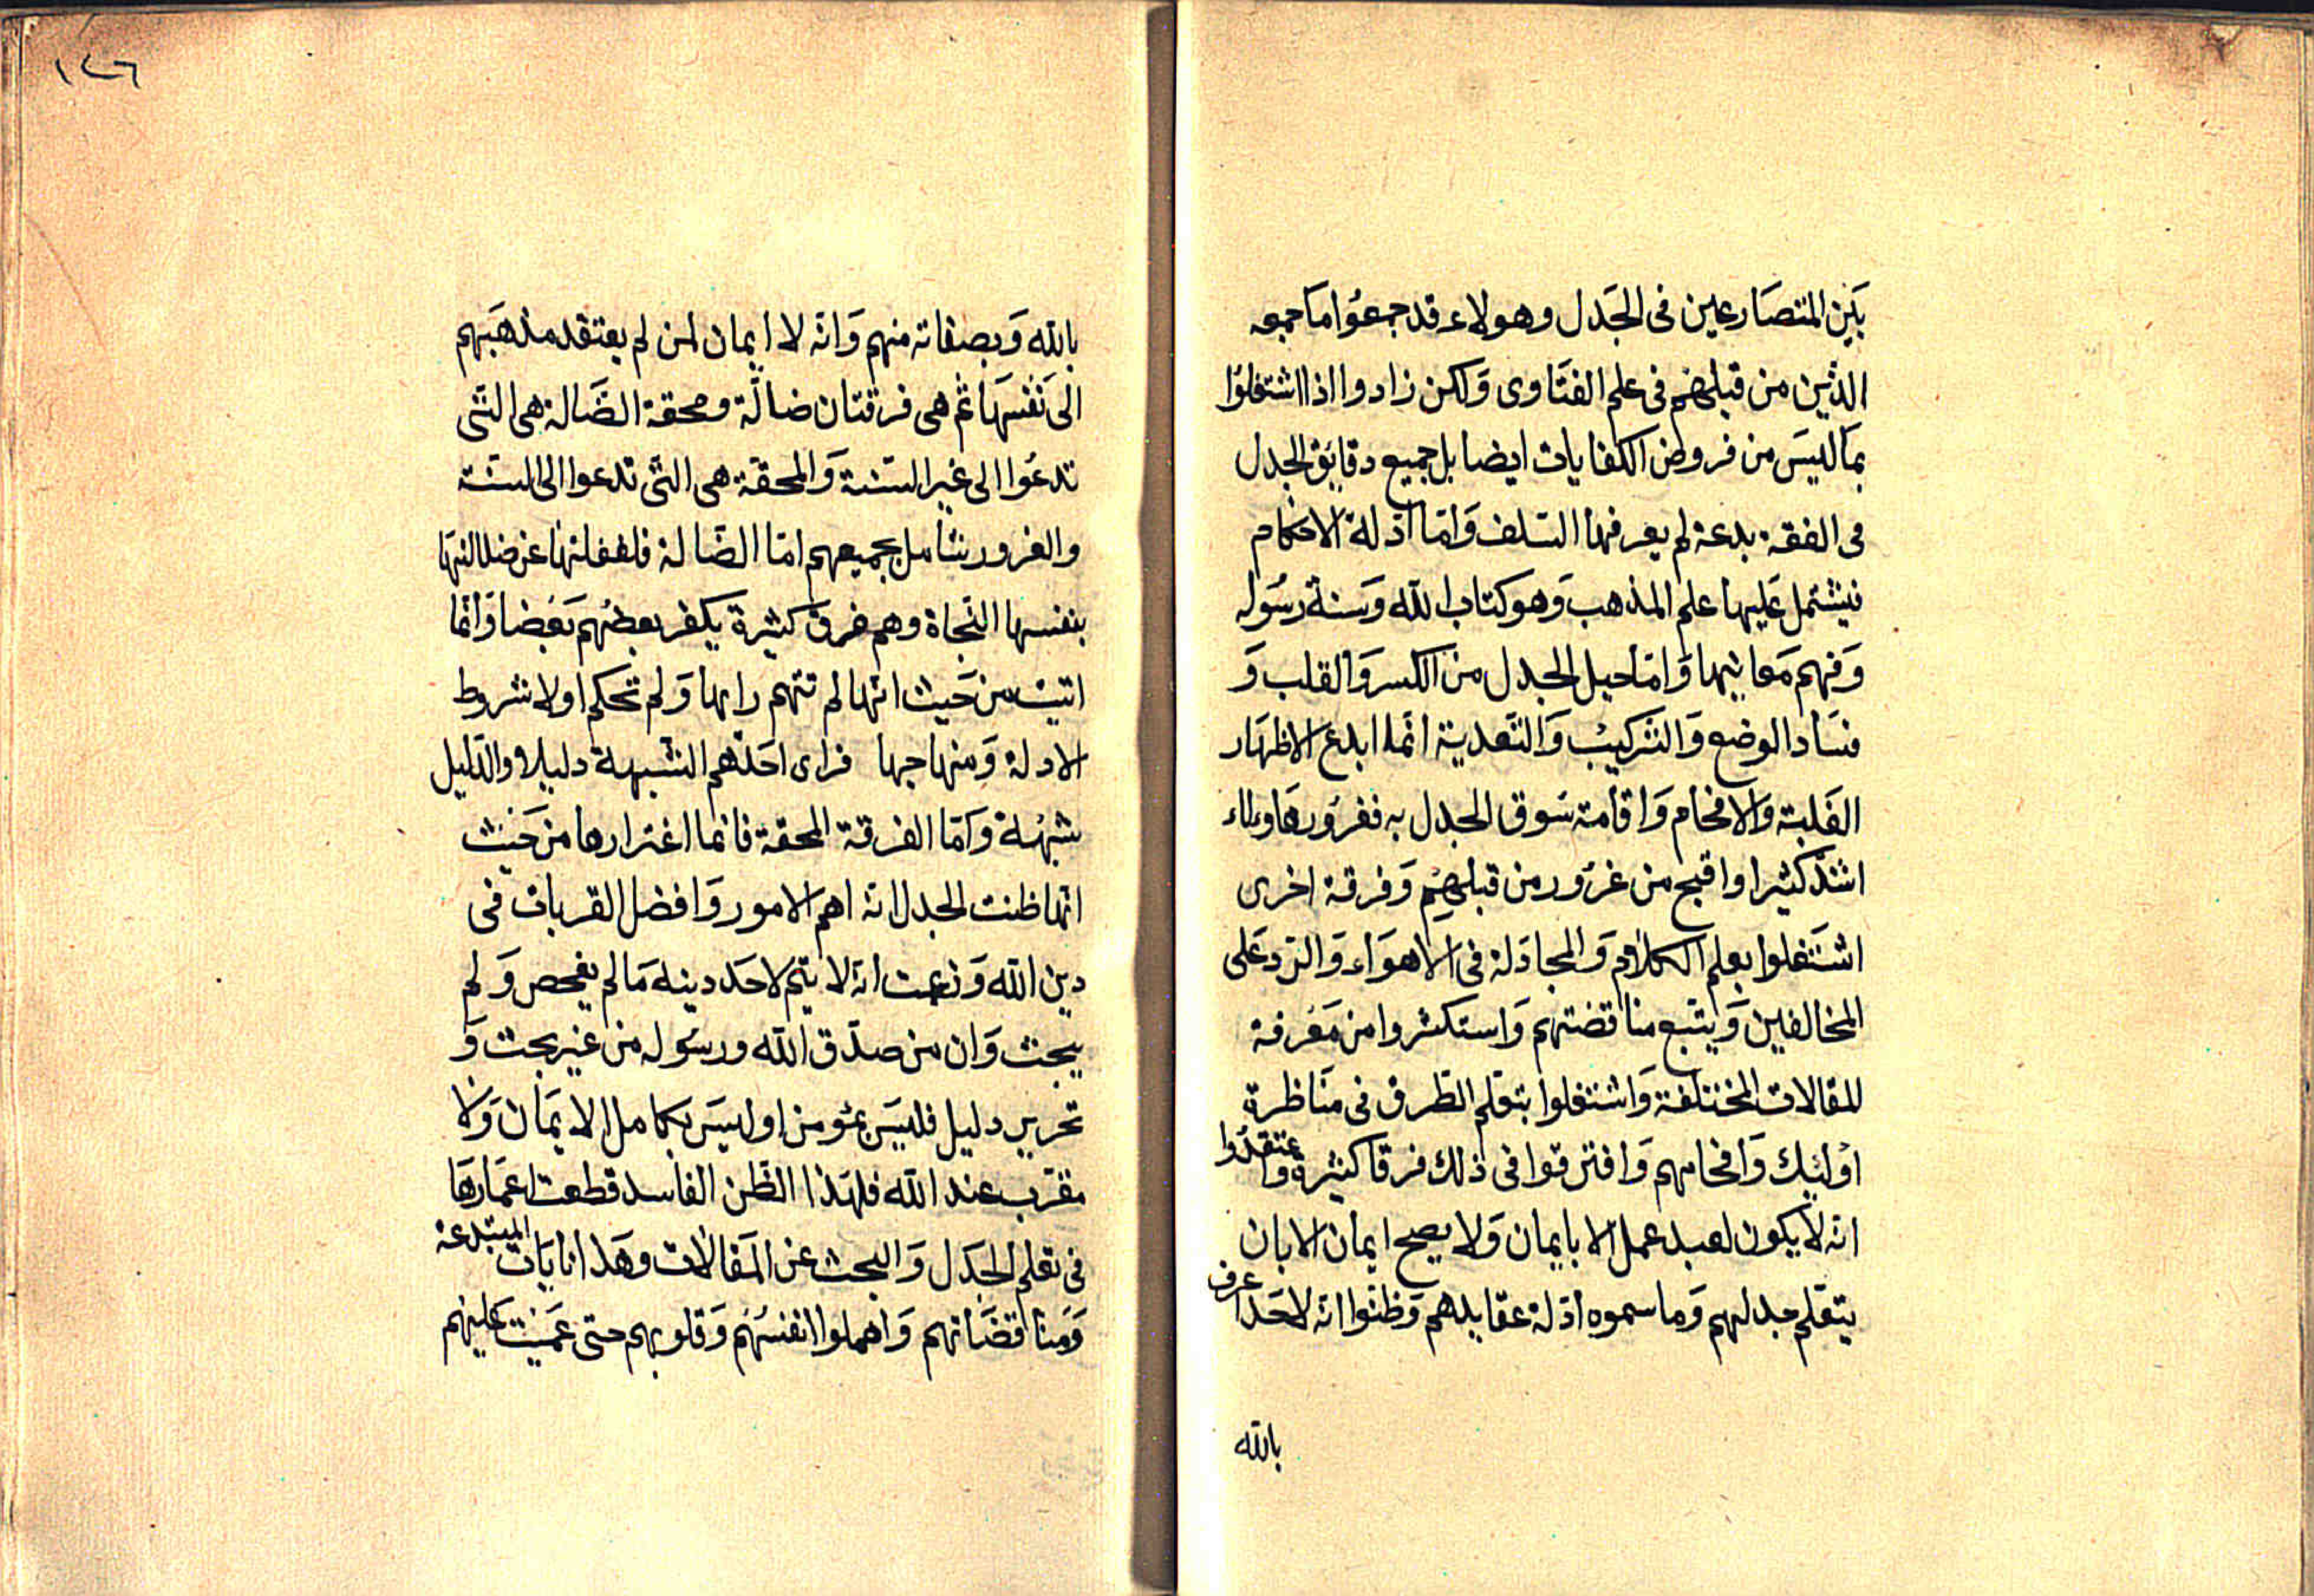 بَين المتصَارعين فى الجَدل وهولاء قد جمعُوا ما جمعه
الذين من قبلهم فى علم الفتَاوى وَلكن زادوا اذا اشتغلوا
بما ليسَ من فروض الكفايات ايضا بل جميع دقايق الجدل
فى الفقه بدعة لم يعرفها السلف وَامّا ادلة الاحكام
فيشتمل عَليها علم المذهب وَهو كتاب الله وَسنة رسُوله
وَفهم مَعانيها وَامّا حيل الجدل من الكسر وَالقلب وَ
فسَاد الوضع وَالتركيب وَالتّعدية انّما ابدع الاظهَار
الغَلبة وَالافحام وَاقامة سُوق الجدل به فغرُور هَاولاء
اشدّ كثيرا واقبح من غرُور من قبلهم وَفرقة اخرى
اشتغلوا بعلم الكلام وَالمجادَلة فى الاهوَاء وَالرّد عَلى
المخالفين وَيتبع مناقضتهم وَاستكثروا من مَعرفة
للمقالات المختلفة وَاشتغلوا بتعلم الطرق فى منَاظرة
اولئك وَافحامهم وَافترقوا فى ذلك فرقا كثيرة وَاعتقدُوا
انه لا يكون لعبد عمل الا بايمان وَلا يصح ايمان الا بان
يتعَلم جدلهم وَما سموه ادلة عقايدهم وَظنوا انه لا احَد اعرف
بالله
١٤٦
بالله وَبصفاته منهم وَانه لا ايمان لمن لم يعتقد مذهَبهم
الى نفسهَا ثم هى فرقتان ضالّة ومحقة الضّالة هى التى
تدعُوا الى غير السّنة وَالمحقة هى التى تدعوا الى السنة
والغرور شامل بجميعهم امّا الضّالة فلغفلتها عن ضلالتهَا
بنفسها النّجاة وهم فرق كثيرة يكفر بعضهُم بَعضا وَانّما
اتيت من حَيث انّها لم تتهم رايها وَلم تحكم اولا شروط
الادلة وَمنهاجها فراى احَدهم الشبهة دليلا والدّليل
شبهة وَامّا الفرقة المحقة فانما اغترارها من حَيث
انها ظنت الجدل انه اهم الامور وَافضل القربات فى
دين الله وَزعمت انه لا يتم لاحَد دينه مَا لم يفحص وَلم
يبحث وَان من صدّق الله ورسُوله من غير بحث وَ
تحرير دليل فليسَ بمؤمن او ليسَ بكامل الايمَان وَلا
مقرّب عند الله فلهَذا الظّن الفاسد قطعت اعمَارهَا
فى تعلم الجَدل وَالبحث عن المَقالات وهَذانايَات المبتدعة
وَمناقضَاتهم وَاهملوا انفسهُم وَقلوبهم حتى عَميت عَليهم